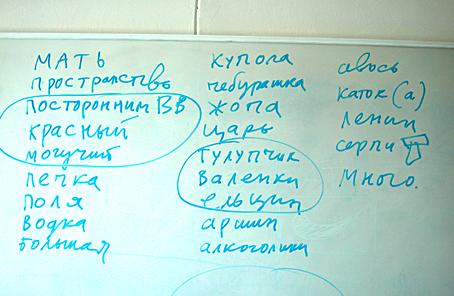 МАТЬ
пространство
посторонним ВВ
красный
могучий
печка
поля
водка
большая
купола
чебурашка
жопа
царь
тулупчик
валенки
ельцин
аршин
алкоголики
авось
каток (а)
ленин
серпи
много.